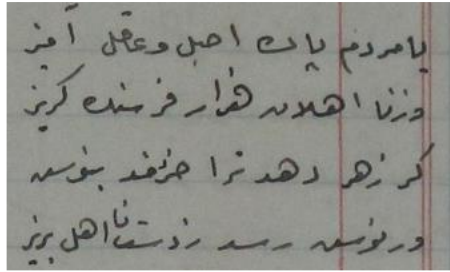 با مردم پاک اصل و عاقل آمیز
وز نا اهلان هزار فرسنگ گریز
گر زهر دهد ترا خردمند بنوش
ور نوش رسد ز دست نا اهل بریز